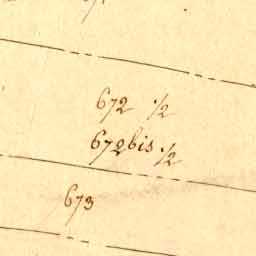 672 1/2
672bis 1/2
673